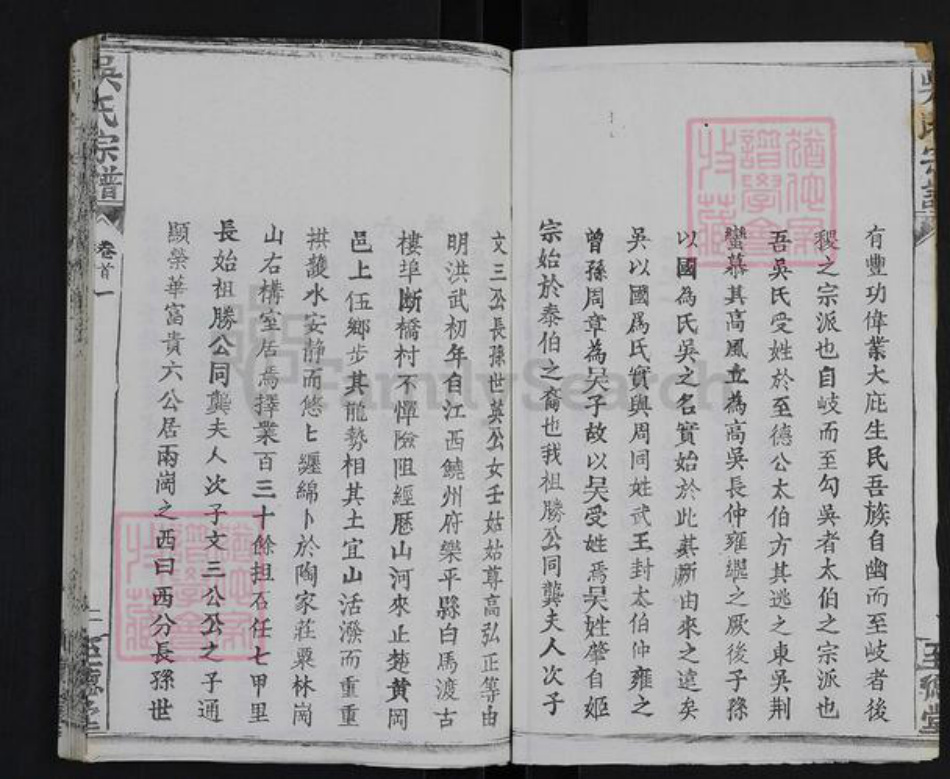 有豐功偉業大庇生民吾族自幽而至岐者後
稷之宗派也自岐而至勾吳者太伯之宗派也
吾吳氏受姓於至德公太伯方其逃之東吳荆
蠻慕其高風立為高吳長仲雍繼之厥後子孫
以國為氏吳之名實始於此其所由來之遠矣
吳以國爲氏實與周同姓武王封太伯仲雍之
曾孫周章為吴子故以吴受姓焉吴姓肇自姬
宗始於泰伯之裔也我祖勝公同龔夫人次子
文三公長孫世英公女壬姑姑尊高弘正等由
明洪武初年自江西饒州府樂平縣白馬渡古
樓埠斷橋村不憚險阻經歷山河來止楚黄岡
邑上伍鄉步其龍勢相其土宜山活潑而重重
拱護水安靜而悠匕纏綿卜於陶家莊粟林崗
山右構室居焉擇業百三十餘担石任七甲里
長始祖勝公同龔夫人次子文三公公之子通
顯榮華富貴六公居兩崗之西曰西分長孫世
吳氏宗譜
卷首一
FamilySearch